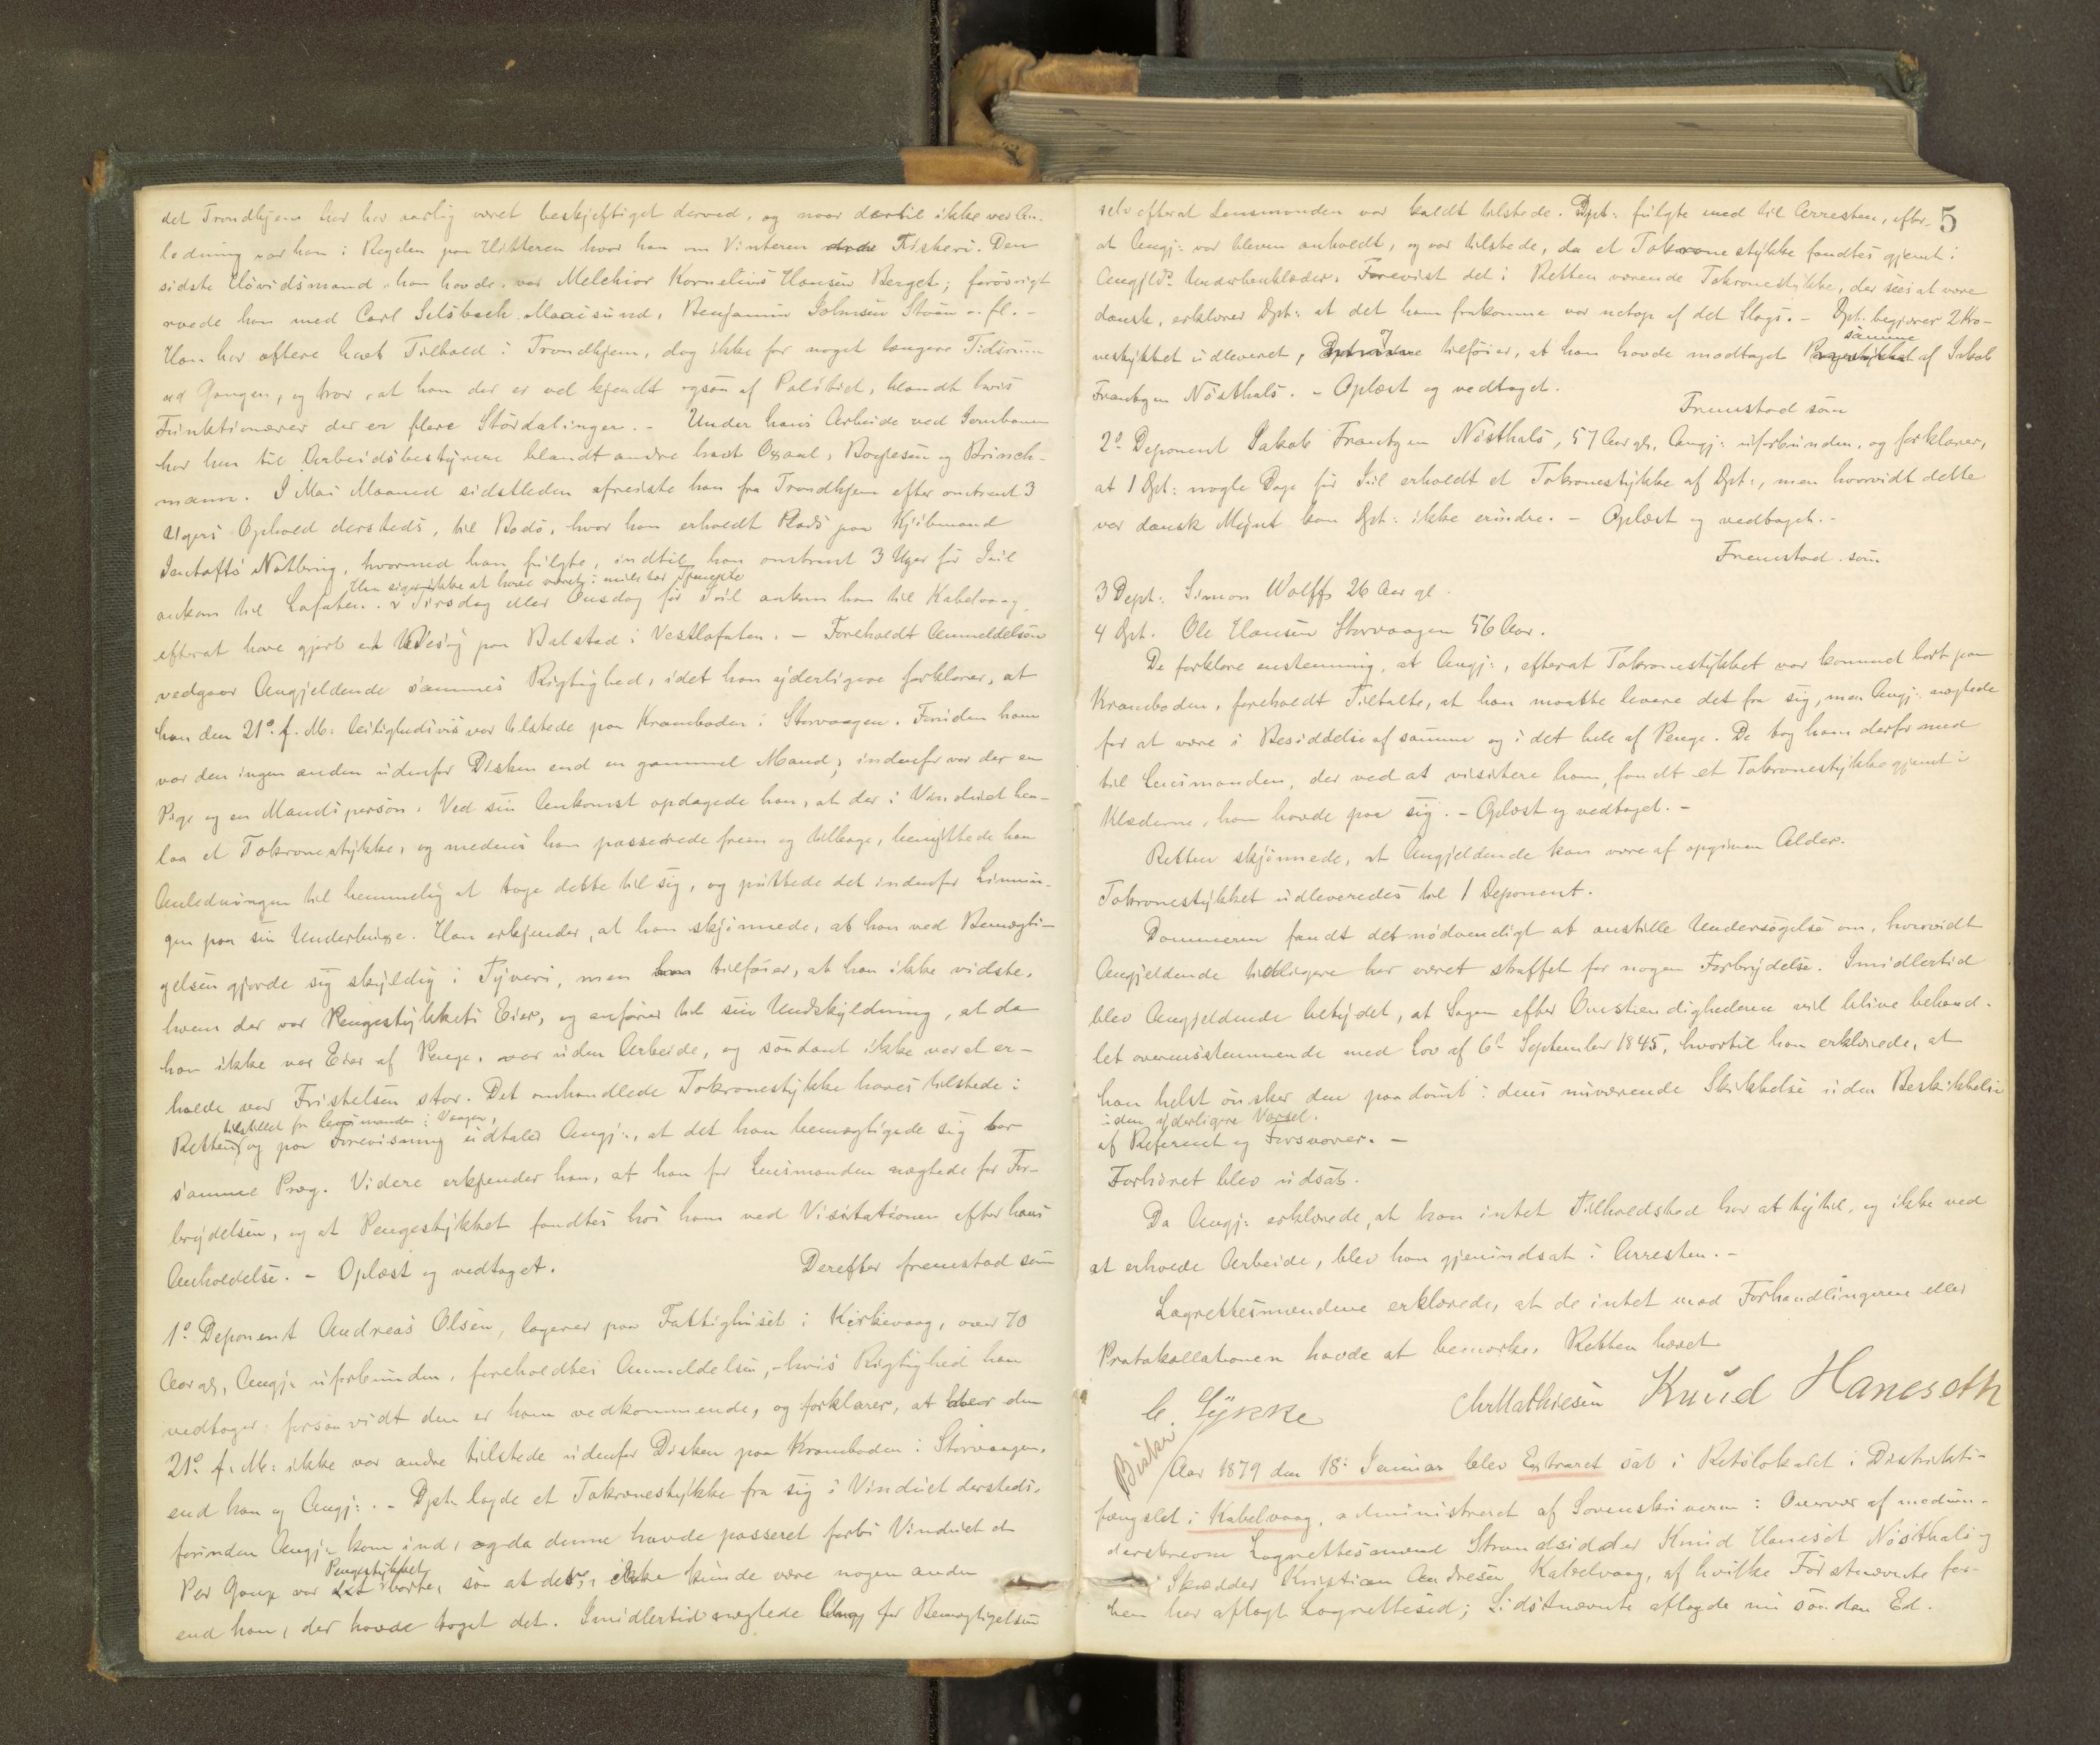 det Trondhjem har han aarlig været beskjeftiget derved, og naar dertil ikke var An-
ledning var han i Reglen paa Hitteren hvor han om Vinteren Fiskeri. Den
sidste Høvidsmand han havde var Melchior Kornelius Hansen Berget; forøvrigt
roede han med Carl Selsbach Maaisund, Benjamin Johnsen Støen o. fl. -
Han har oftere havt Tilhold i Trondhjem, dog ikke for noget længere Tidsrum
ad Gangen, og tror, at han der er vel kjendt ogsaa af Politiet, blandt hvis
Funktionærer der er flere Størdalinger. - Under hans Arbeide ved Jernbanen
har han til Arbeidsbestyrere blandt andre havt Oxaal, Boylesen og Brinch-
mann. I Mai Maaned sidstleden afreiste han fra Trondhjem efter omtrent 3
Ugers Ophold dersteds, til Bodø, hvor han erholdt Plads paa Kjøbmand
Jentofts Notbrug, hvormed han fulgte, indtil han omtrent 3 Uger før Juul
Han siger ikke at have været i militær Tjeneste
ankom til Lofoten. Tirsdag eller Onsdag før Juul ankom han til Kabelvaag,
efterat have gjort et Besøg paa Balstad i Vestlofoten. - Foreholdt Anmeldelsen
vedgaar Angjeldende sammes Rigtighed, idet han yderligere forklarer, at
han den 21º f. M. leilighedsvis var tilstede paa Kramboden i Storvaagen. Foruden ham
var den ingen anden udenfor Disken end en gammel Mand; indenfor var der en
Pige og en Mandsperson. Ved sin Ankomst opdagede han, at der i Vinduet hen-
laa et Tokronestykke, og medens han passerede frem og tilbage, benyttede han
Anledningen til hemmelig at tage dette til sig, og puttede det indenfor Linnin-
gen paa sin Underbuxe. Han erkjender, at han skjønnede, at han ved Bemægti-
gelsen gjorde sig skyldig i Tyveri, men han tilføier, at han ikke vidste,
hvem der var Pengestykkets Eier, og anfører til sin Undskyldning, at da
han ikke var Eier af Penge, var uden Arbeide, og saadant ikke var at er-
holde var Fristelsen stor. Det omhandlede Tokronestykke haves tilstede i
tilstillet fra Lensmanden i Vaagen,
Retten, og paa Forevisning udtaler Angj:, at det han bemægtigede sig bar
samme Præg. Videre erkjender han, at han for Lensmanden nægtede for For-
brydelsen, og at Pengestykket fandtes hos ham ved Visitationen efter hans
Anholdelse. - Oplæst og vedtaget. Derefter fremstod som
1º Deponent Andreas Olsen, logerer paa Fattighuset i Kirkevaag, over 70
Aar gl, Angj: uforbunden, foreholdtes Anmeldelsen, hvis Rigtighed han
vedtager forsaavidt den er ham vedkommende, og forklarer, at der den
21º f. M: ikke var andre tilstede udenfor Disken paa Kramboden i Storvaagen,
end han og Angj:. - Dpt. lagde et Tokronestykke fra sig i Vinduet dersteds,
forinden Angj: kom ind, og da denne havde passeret forbi Vinduet et
Pengestykket
Par Gange var borte, saa at det ikke kunde være nogen anden
end han, der havde taget det. Imidlertid nægtede Angj for Bemægtigelsen
5
selv efterat Lensmanden var kaldt tilstede. Dpt: fulgte med til Arresten, efter-
at Angj: var bleven anholdt, og var tilstede, da et Tokronestykke fandtes gjemt i
Angjlds Underbenklæder. Forevist det i Retten værende Tokronestykke, der sees at være
dansk, erklærer Dpt: at det ham frakomne var netop af det Slags. - Dpt. begjærer 2 Kro-
og samme
nestykket udleveret, tilføier, at han havde modtaget Pengestykket af Jakob
Frantzen Nøsthals. - Oplæst og vedtaget.
Fremstod som
2º Deponent Jakob Frantzen Nøsthals, 57 Aar gl, Angj: uforbunden, og forklarer,
at 1 Dpt: nogle Dage før Juul erholdt et Tokronestykke af Dpt:, men hvorvidt dette
var dansk Mynt kan Dpt: ikke erindre. - Oplæst og vedtaget. -
Fremstod som
3 Dept: Simon Wolff 26 Aar gl.
4 Dpt. Ole Hansen Storvaagen 56 Aar.
De forklare enstemmig, at Angj:, efterat Tokronestykket var kommet bort paa
Kramboden, foreholdt Tiltalte, at han maatte levere det fra sig, men Angj: nægtede
for at være i Besiddelse af samme og i det hele af Penge. De tog ham derfor med
til Lensmanden, der ved at visitere ham, fandt et Tokronestykke gjemt i
Klæderne, han havde paa sig. - Oplæst og vedtaget. -
Retten skjønnede, at Angjeldende kan være af opgiven Alder.
Tokronestykket udleveredes til 1 Deponent.
Dommeren fandt det nødvendigt at anstille Undersøgelse om, hvorvidt
Angjeldende tidligere har været straffet for nogen Forbrydelse. Imidlertid
blev Angjeldende betydet, at Sagen efter Omstændighederne vil blive behand-
let overensstemmende med Lov af 6te September 1845, hvortil han erklærede, at
han helst ønsker den paadømt i dens nuværende Skikkelse uden Beskikkelse
uden yderligere Varsel.
af Referent og Forsvarer. -
Forhøret blev udsat.
Da Angj: erklærede, at han intet Tilholdssted har at ty til, og ikke ved
at erholde Arbeide, blev han gjenindsat i Arresten. -
Lagrettesmændene erklærede, at de intet mod Forhandlingerne eller
Protokollationen havde at bemærke. Retten hævet
C. Lykke Chr Mathiesen Knud Haneseth
Aar 1879 den 18: Januar blev Extraret sat i Retslokalet i Distrikts-
fængslet i Kabelvaag, administreret af Sorenskriveren i Overvær af medun-
derskrevne Lagrettesmænd Strandsidder Knud Haneset Nøsthals og
Skrædder Kristian Andresen Kabelvaag, af hvilke Førstnævnte før-
hen har aflagt Lagrettesed; Sidstnævnte aflagde nu saadan Ed.